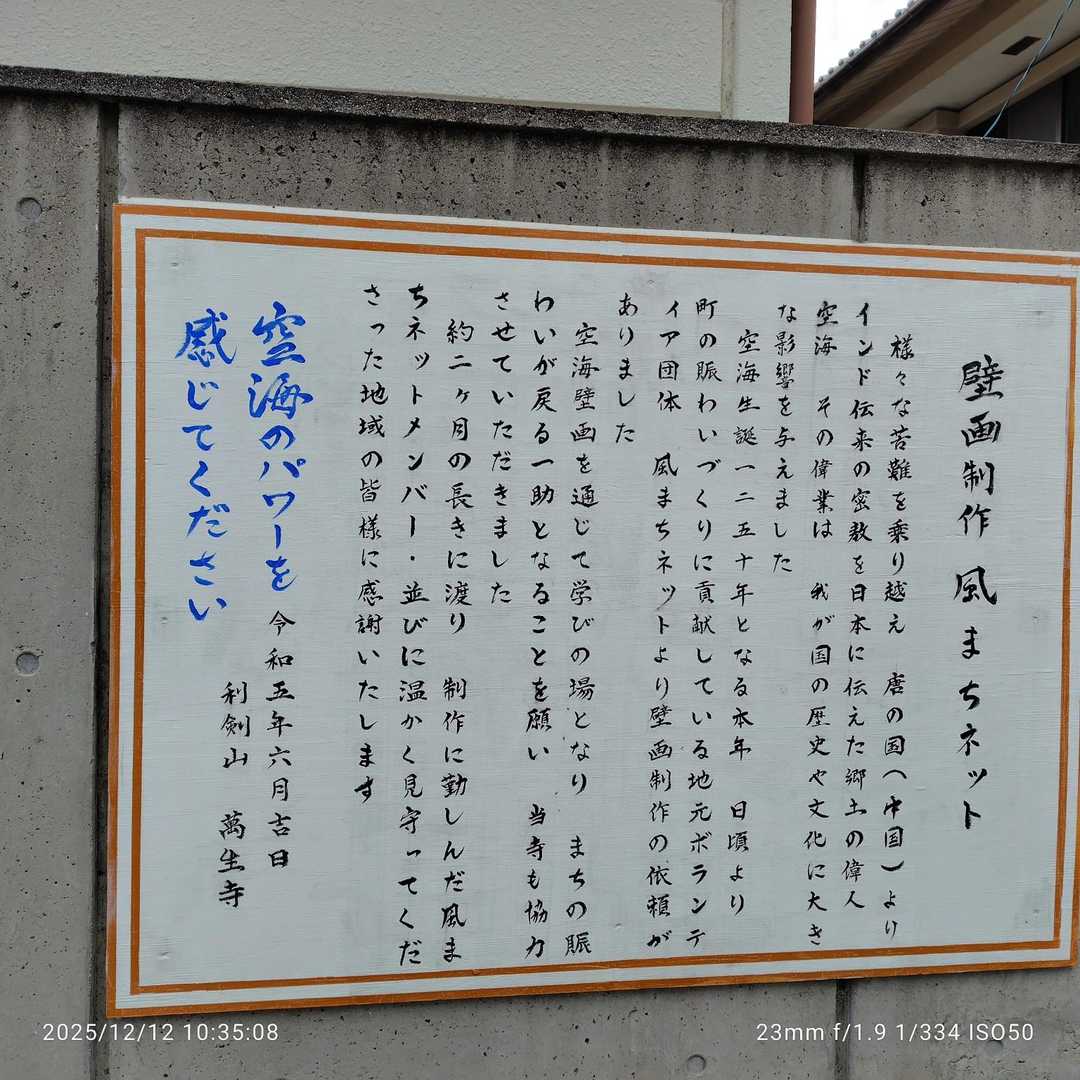 壁画制作 風まちネット
様々な苦難を乗り越え 唐の国(中国)より
インド伝来の密教を日本に伝えた郷土の偉人
空海 その偉業は 我が国の歴史や文化に大き
な影響を与えました
空海生誕一二五十年となる本年 日頃より
町の賑わいづくりに貢献している地元ボランテ
ィア団体 風まちネットより壁画制作の依頼が
ありました
空海壁画を通じて学びの場となり まちの賑
わいが戻る一助となることを願い 当寺も協力
させていただきました
約二ヶ月の長きに渡り 制作に勤しんだ風ま
ちネットメンバー・並びに温かく見守ってくだ
さった地域の皆様に感謝いたします
空海のパワーを
感じてください
令和五年六月吉日
利剣山 萬生寺
2025/12/12 10:35:08
23mm f/1.9 1/334 ISO50